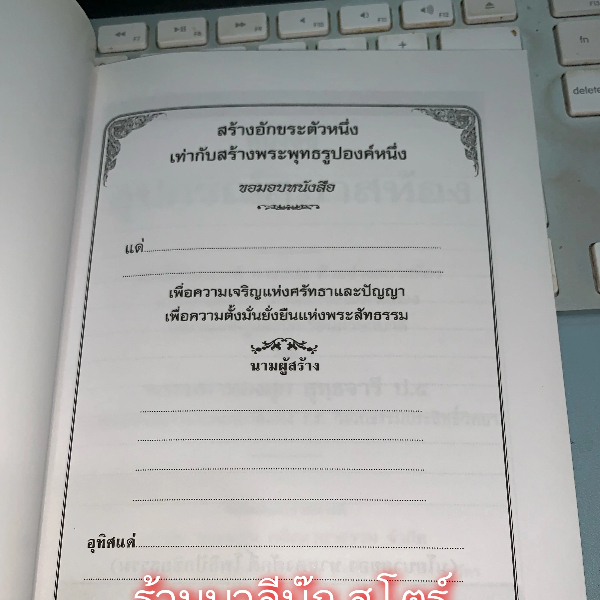 สร้างอักขระตัวหนึ่ง
เท่ากับสร้างพระพุทธรูปองค์หนึ่ง
ขอมอบหนังสือ
แด่
เพื่อความเจริญแห่งศรัทธาและปัญญา
เพื่อความตั้งมั่นยั่งยืนแห่งพระสัทธรรม
นามผู้สร้าง
อุทิศแด่
fn
delete